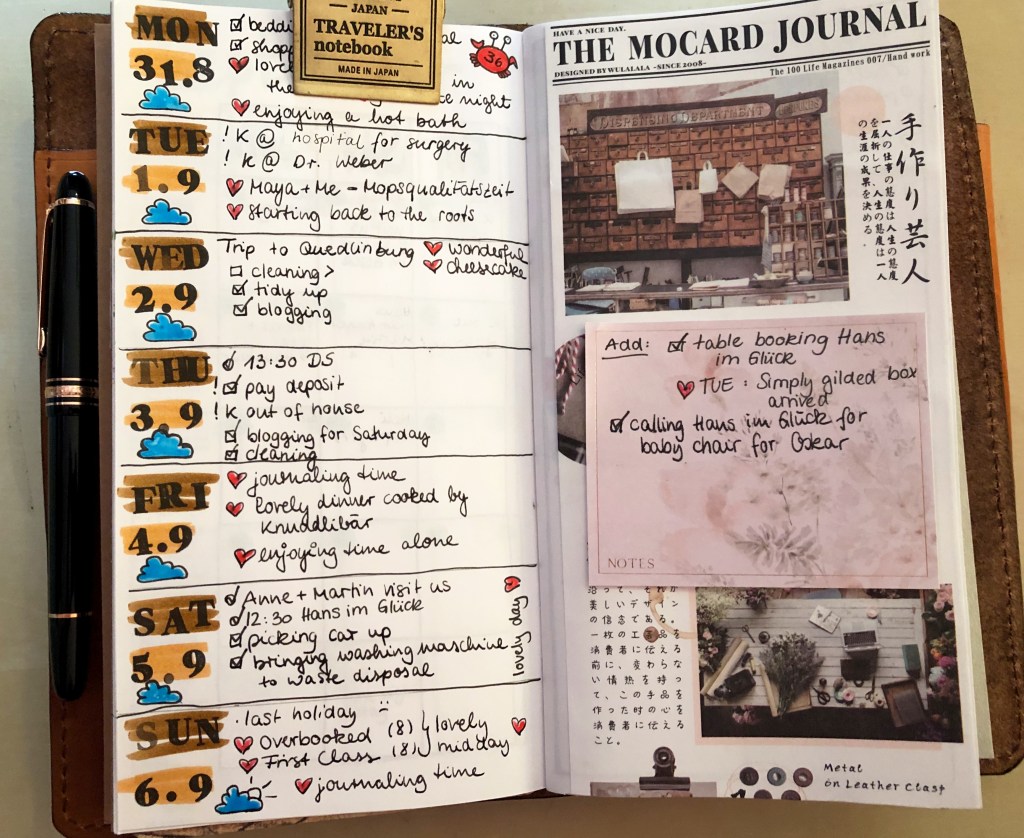 JAPAN
TRAVELER'S
notebook
MADE IN JAPAN
MON
31.8
36
in
night
enjoying a hot bath
TUE
1.9
! K @ hospital for surgery
! K @ Dr. Weber
Maya + Me - Mopsqualitätszeit
starting back to the roots
WED
2.9
Trip to Quedlinburg
wonderful
cheesecake
cleaning >
tidy up
blogging
THU
3.9
13:30 DS
! pay deposit
! K out of house
blogging for Saturday
cleaning
FRI
4.9
journaling time
lovely dinner cooked by
Knuddlibär
enjoying time alone
SAT
5.9
Anne + Martin visit us
12:30 Hans im Glück
picking car up
bringing washing maschine
to waste disposal
lovely day
SUN
6.9
last holiday
Overbooked (8)
First Class (8)
lovely
midday
journaling time
HAVE A NICE DAY.
THE MOCARD JOURNAL
DESIGNED BY WULALALA -SINCE 2008-
The 100 Life Magazines 007/Hand work
DISPENSING DEPARTMENT
手作り芸人
一人の仕事の態度は人生の態度
を屈折して、人生の態度は一人
の生涯の成果を決める。
Add: table booking Hans
im Glück
TUE: Simply gilded box
arrived
calling Hans im Glück for
baby chair for Oskar
NOTES
美しいデザイン
の信念である。
一枚の工芸品を
消費者に伝える
前に、変わらな
い情熱を持っ
て、この手品を
作った時の心を
消費者に伝える
こと。
Metal
on Leather Clasp